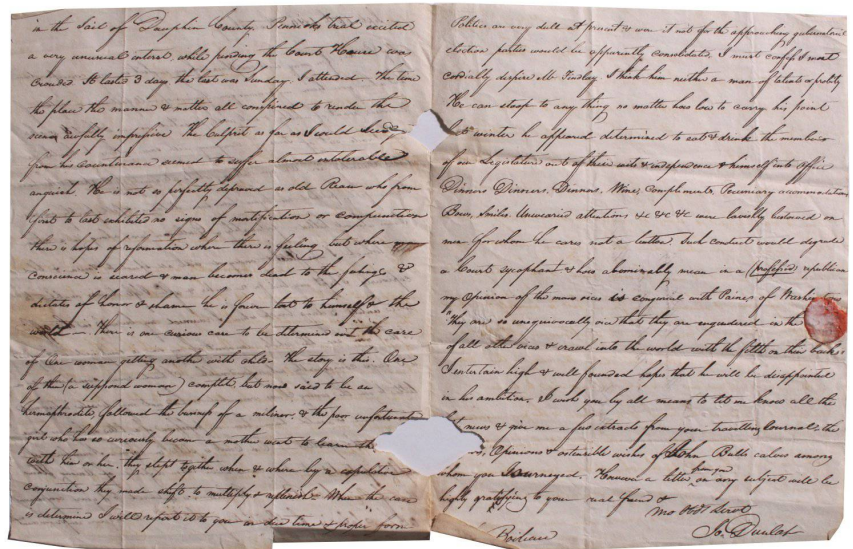 in the Jail of Dauphin County Pennsa his trial excited
a very unusual interest while pending the Court House was
Crowded It lasted 3 days the last was Sunday I attended. The time
the place the manner & matter all conspired to render the
scene awfully impressive The Culprit as far as I could
from his Countenance seemed to suffer almost intolerable
anguish. He is not so perfectly depraved as old who from
first to last exhibited no signs of mortification or compunction
there is hopes of reformation where there is feeling but where
conscience is seared & man becomes dead to the feelings &
dictates of honor & shame he is forever lost to himself & the
world — There is one curious case to be determined viz the case
of One woman getting another with child — The story is this. One
of the (a supposed woman) complts. but now said to be an
hermaphrodite, followed the business of a milliner, & the poor unfortunate
girl who has so curiously become a mother went to learn the
with him or her. They slept together when & where by a copulative
conjunction they made shift to multiply & replenish — When the case
is determined I will report it to you in due time & proper form
Politics are very dull at present & were it not for the approaching gubernatorial
election parties would be apparently consolidated. I must confess I most
cordially despise Mr Findley I think him neither a man of talents or probity
He can stoop to any thing no matter how low to carry his point
Last winter he appeared determined to eat & drink the members
of our Legislature out of their wits & independence & himself into office
Dinners Dinners. Dinners. Wine, Compliments Pecuniary accommodations
Bows, Smiles. Unwearied attentions &c &c &c were lavishly bestowed on
men for whom he cares not a button. Such conduct would degrade
a Court sycophant & how abominably mean in a (professed) republican
my Opinion of the mans vices is congenial with Paines of Washington
"They are so unequivocally vice that they are engendered in the
of all other vices & crawl into the world with the filth on their backs"
I entertain high & well founded hopes that he will be disappointed
in his ambition. I wish you by all means to let me know all the
news & give me a few extracts from your travelling Journal, the
Opinions & ostensible wishes of John Bulls calves among
whom you Journeyed. However a letter from you on any subject will be
highly gratifying to your real friend &
mo Obt Servt
Js. Dunlap
Boileau